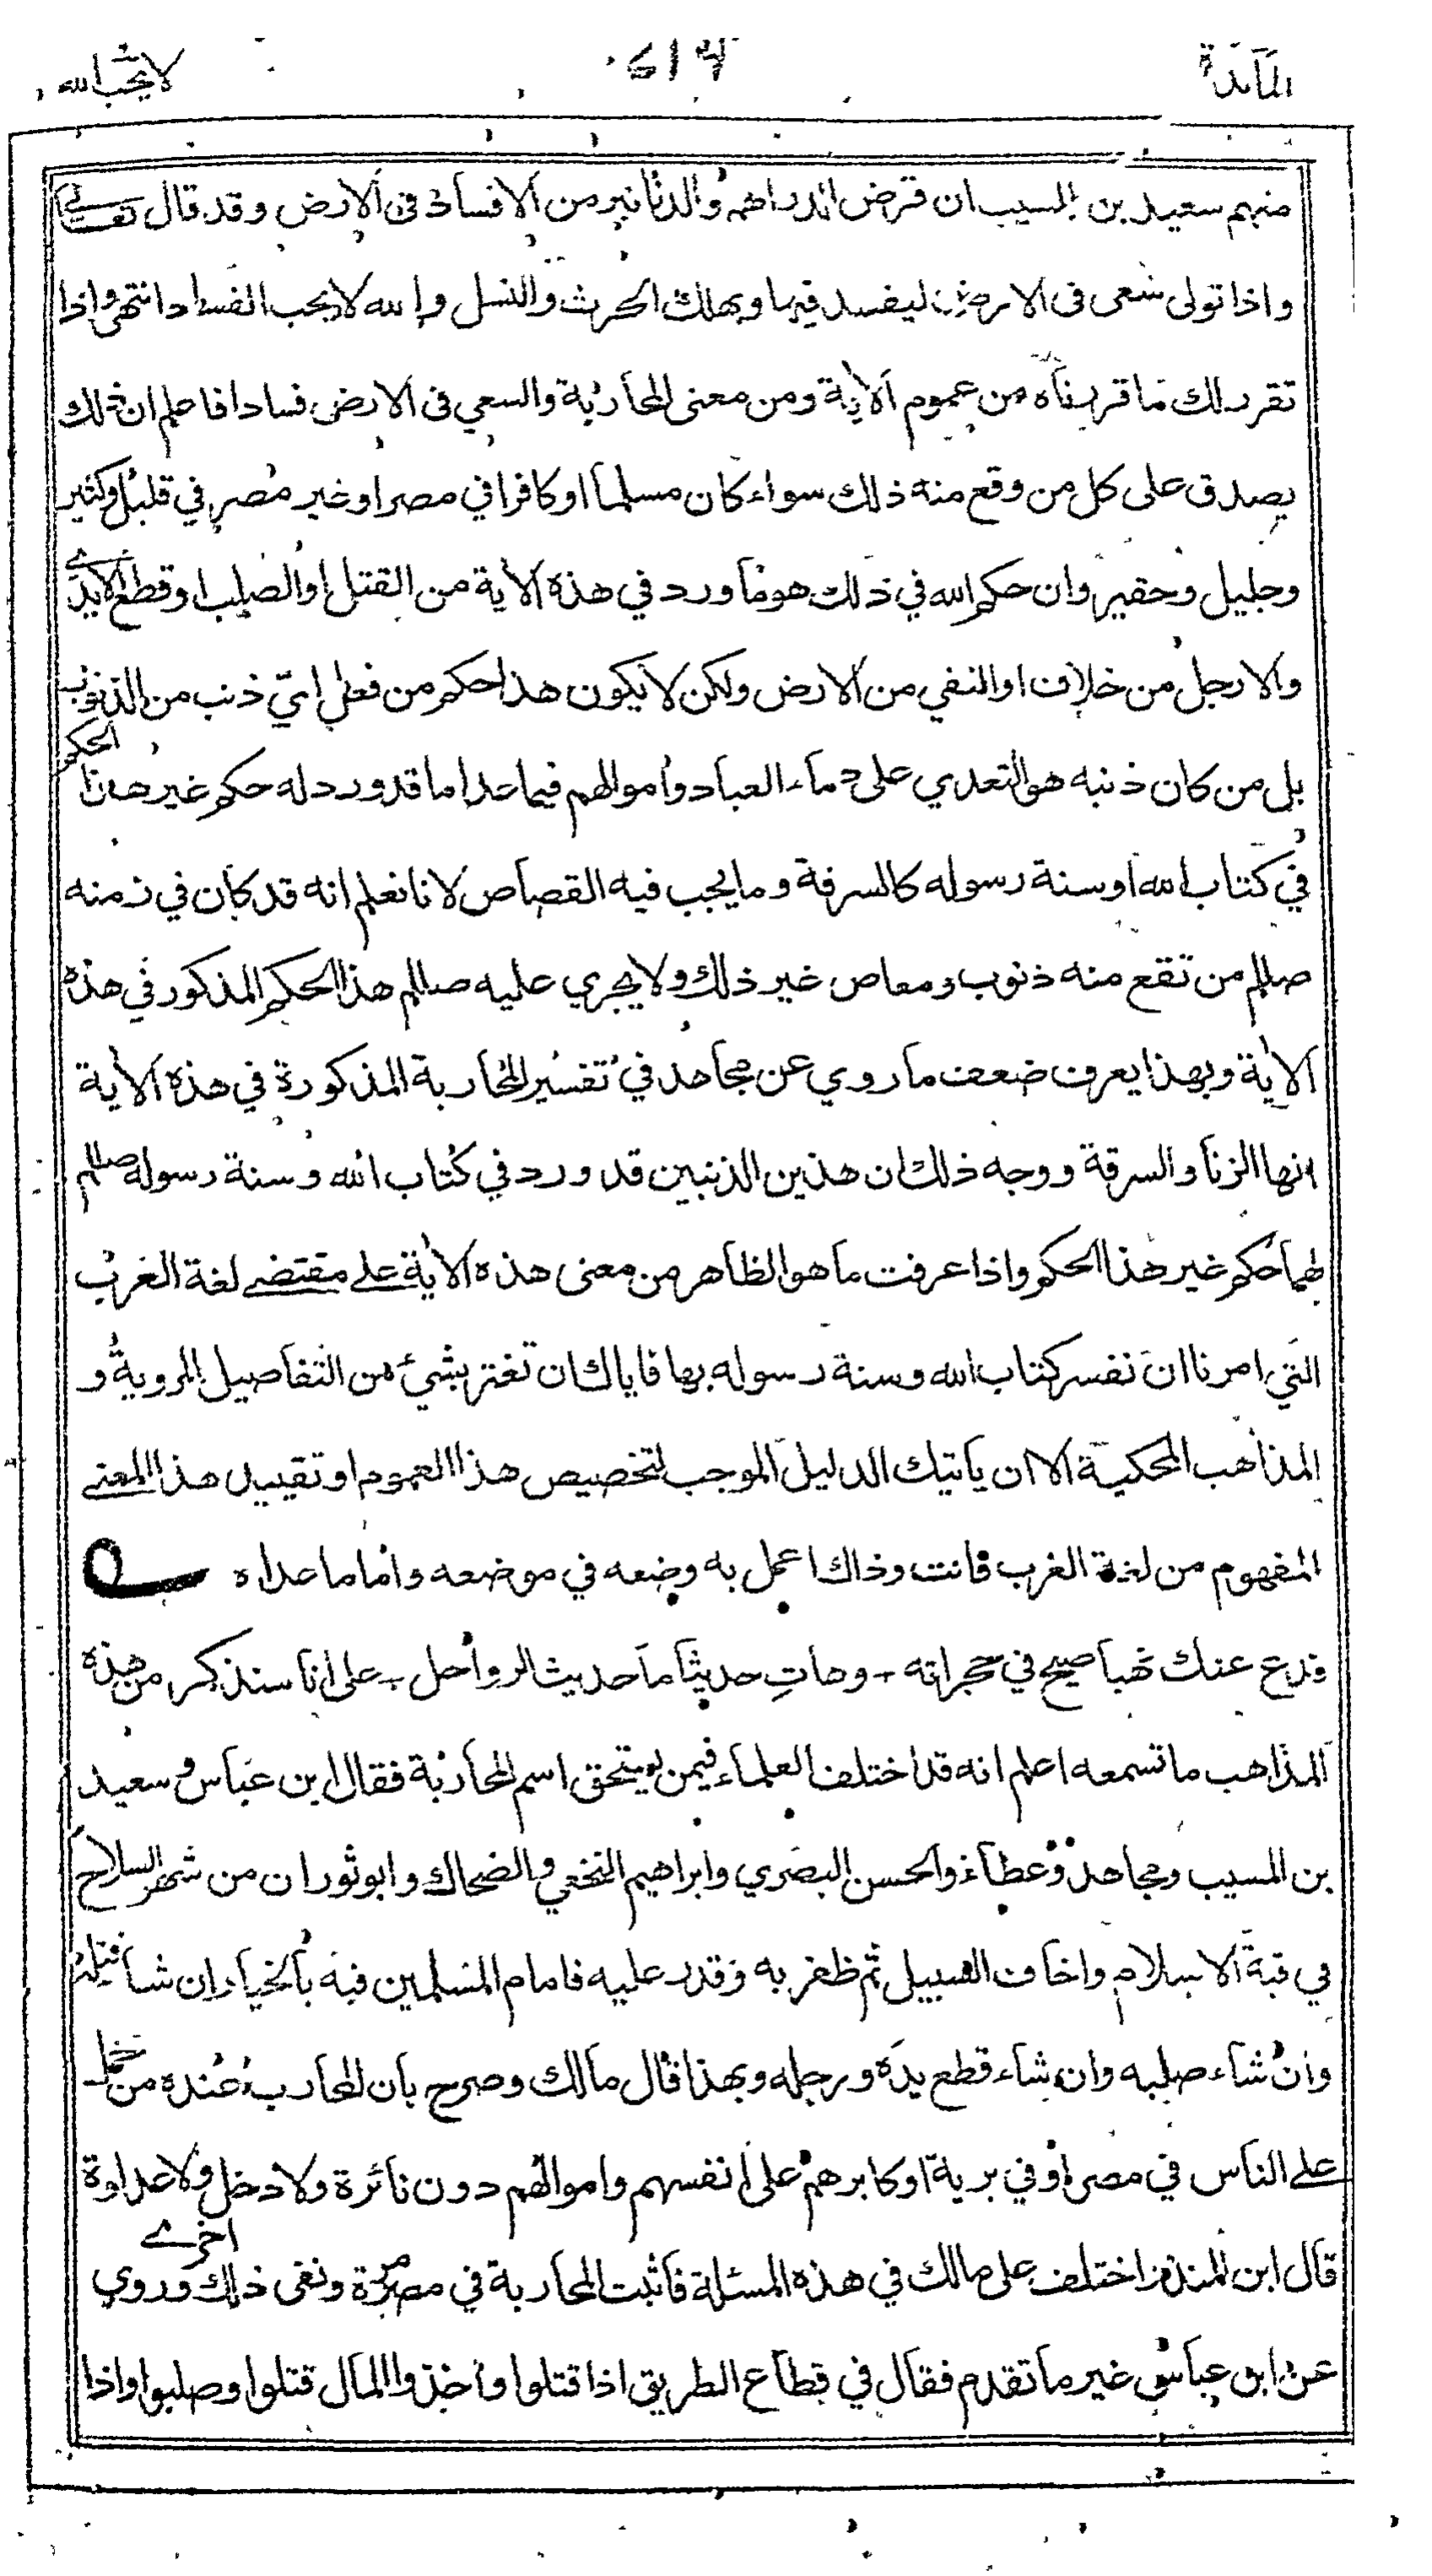 المائدة
لا يحب الله
منهم سعيد بن المسيب ان قرض الدراهم والدنانير من الافساد في الارض وقد قال تعالى
واذا تولى سعى في الارض ليفسد فيها ويهلك الحرث والنسل والله لا يحب الفساد انتهى واذا
تقرر لك ما قررناه من عموم الاية ومن معنى المحاربة والسعي في الارض فسادا فاعلم ان ذلك
يصدق على كل من وقع منه ذلك سواء كان مسلما او كافرا في مصر او غير مصر في قليل وكثير
وجليل وحقير وان حكم الله في ذلك هو ما ورد في هذه الاية من القتل او الصلب او قطع الايدي
والارجل من خلاف او النفي من الارض ولكن لا يكون هذا حكم من فعل اي ذنب من الذنوب
بل من كان ذنبه هو التعدي على دماء العباد واموالهم فيما عدا ما قد ورد له حكم غير هذا الحكم
في كتاب الله او سنة رسوله كالسرقة وما يجب فيه القصاص لانا نعلم انه قد كان في زمنه
صللم من تقع منه ذنوب ومعاص غير ذلك ولا يجري عليه صللم هذا الحكم المذكور في هذه
الاية وبهذا يعرف ضعف ما روي عن مجاهد في تفسير المحاربة المذكورة في هذه الاية
انها الزنا والسرقة ووجه ذلك ان هذين الذنبين قد ورد في كتاب الله وسنة رسوله صللم
لهما حكم غير هذا الحكم واذا عرفت ما هو الظاهر من معنى هذه الاية على مقتضى لغة العرب
التي امرنا ان نفسر كتاب الله وسنة رسوله بها فاياك ان تغتر بشيئ من التفاصيل المروية و
المذاهب المحكية الا ان ياتيك الدليل الموجب لتخصيص هذا العموم او تقييد هذا المعنى
المفهوم من لغة العرب فانت وذاك اعمل به وضعه في موضعه واما ما عداه
فدع عنك نهبا صيح في حجراته - وهات حديثا ما حديث الرواحل - على انا سنذكر من هذه
المذاهب ما تسمعه اعلم انه قد اختلف العلماء فيمن يستحق اسم المحاربة فقال ابن عباس وسعيد
بن المسيب ومجاهد وعطاء والحسن البصري وابراهيم النخعي والضحاك وابو ثور ان من شهر السلاح
في قبة الاسلام واخاف السبيل ثم ظفر به وقدر عليه فامام المسلمين فيه بالخيار ان شاء قتله
وان شاء صلبه وان شاء قطع يده ورجله وبهذا قال مالك وصرح بان المحارب عنده من حمل
على الناس في مصر او في برية او كابرهم على انفسهم واموالهم دون نائرة ولا دخل ولا عداوة
قال ابن المنذر اختلف على مالك في هذه المسئلة فاثبت المحاربة في مصر مرة ونفى ذلك اخرى وروي
عن ابن عباس غير ما تقدم فقال في قطاع الطريق اذا قتلوا واخذوا المال قتلوا وصلبوا واذا